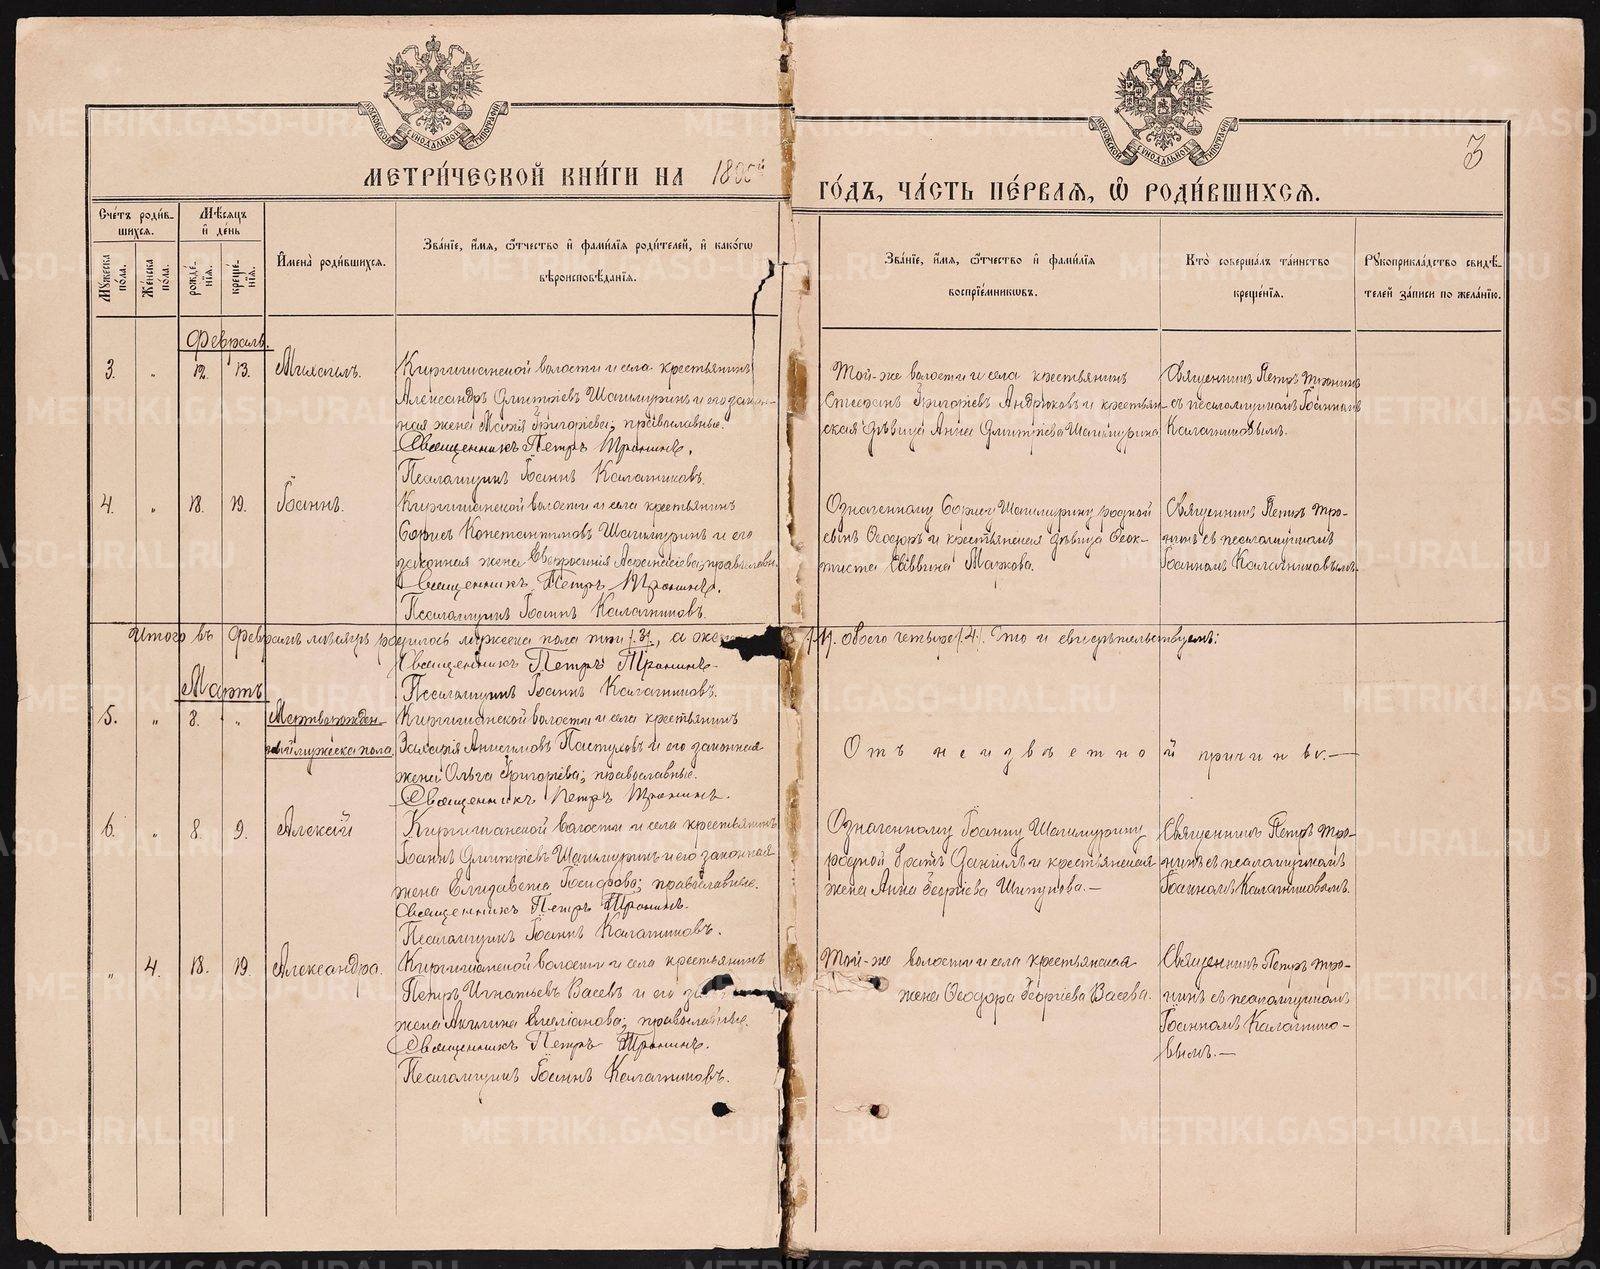 МОСКОВСКОЙ СУНОДАЛЬНОЙ ТИПОГРАФІИ
МОСКОВСКОЙ СУНОДАЛЬНОЙ ТИПОГРАФІИ
3
МЕТРИ́ЧЕСКОЙ КНИ́ГИ НА
ГО́ДЪ, ЧА́СТЬ ПЕ́РВАѦ, Ѡ РОДИ́ВШИХСѦ.
Сче́тъ роди́в-
шихсѧ.
Мѣ́сѧцъ
и҆ де́нь
Мꙋ́жеска
по́ла.
Же́нска
по́ла.
рожде́-
нїѧ.
креще́-
нїѧ.
И҆мена̀ роди́вшихсѧ.
Зва́нїе, и҆́мѧ, ѻ҆́тчество и҆ фами́лїѧ роди́телей, и҆ како́гѡ
вѣроисповѣ́данїѧ.
Зва́нїе, и҆́мѧ, ѻ҆́тчество и҆ фами́лїѧ
воспрїе́мникѡвъ.
Кто̀ соверша́лъ та́инство
креще́нїѧ.
Рꙋкоприкла́дство свидѣ́-
телей за́писи по жела́нїю.
Февраль.
3. " 12. 13. Михаилъ.
Киргишанской волости и села крестьянинъ
Александръ Димитріевъ Шашмуринъ и его закон-
ная жена Марія Григоріева; православные.
Священникъ Петръ Тронинъ.
Псаломщикъ Іоаннъ Калашниковъ.
Той-же волости и села крестьянинъ
Стефанъ Григоріевъ Андрюковъ и крестьян-
ская дѣвица Анна Димитріева Шашмурина
Священникъ Петръ Тронинъ
съ псаломщикомъ Іоанномъ
Калашниковымъ.
4. " 18. 19. Іоаннъ.
Киргишанской волости и села крестьянинъ
Борисъ Константиновъ Шашмуринъ и его
законная жена Евфросинія Афанасіева; православн.
Священникъ Петръ Тронинъ.
Псаломщикъ Іоаннъ Калашниковъ.
Означенному Борису Шашмурину родной
сынъ Ѳеодоръ и крестьянская дѣвица Ѳеок-
тиста Саввина Маркова.
Священникъ Петръ Тро-
нинъ съ псаломщикомъ
Іоанномъ Калашниковымъ.
Итого въ Февралѣ мѣсяцѣ родилось мужеска пола три /3/, а жен
/1/. обоего четыре /4/. Что и свидѣтельствуемъ:
Священникъ Петръ Тронинъ.
Псаломщикъ Іоаннъ Калашниковъ.
Мартъ
5. " 8. " Мертворожден-
ный мужеска пола
Киргишанской волости и села крестьянинъ
Захарія Анисимовъ Пастуховъ и его законная
жена Ольга Григоріева; православные.
Священникъ Петръ Тронинъ.
Отъ неизвѣстной причины.—
6. " 8. 9. Алексѣй
Киргишанской волости и села крестьянинъ
Іоаннъ Димитріевъ Шашмуринъ и его законная
жена Елизавета Іосифова; православные.
Священникъ Петръ Тронинъ.
Псаломщикъ Іоаннъ Калашниковъ.
Означенному Іоанну Шашмурину
родной братъ Даніилъ и крестьянская
жена Анна Георгіева Шипунова.—
Священникъ Петръ Тро-
нинъ съ псаломщикомъ
Іоанномъ Калашниковымъ.
" 4. 18. 19. Александра.
Киргишанской волости и села крестьянинъ
Петръ Игнатьевъ Васевъ и его за
жена Акилина Емеліанова; православные.
Священникъ Петръ Тронинъ.
Псаломщикъ Іоаннъ Калашниковъ.
Той-же волости и села крестьянская
жена Ѳеодора Георгіева Васева.
Священникъ Петръ Тро-
нинъ съ псаломщикомъ
Іоанномъ Калашнико-
вымъ.—
METRIKI.GASO-URAL.RU